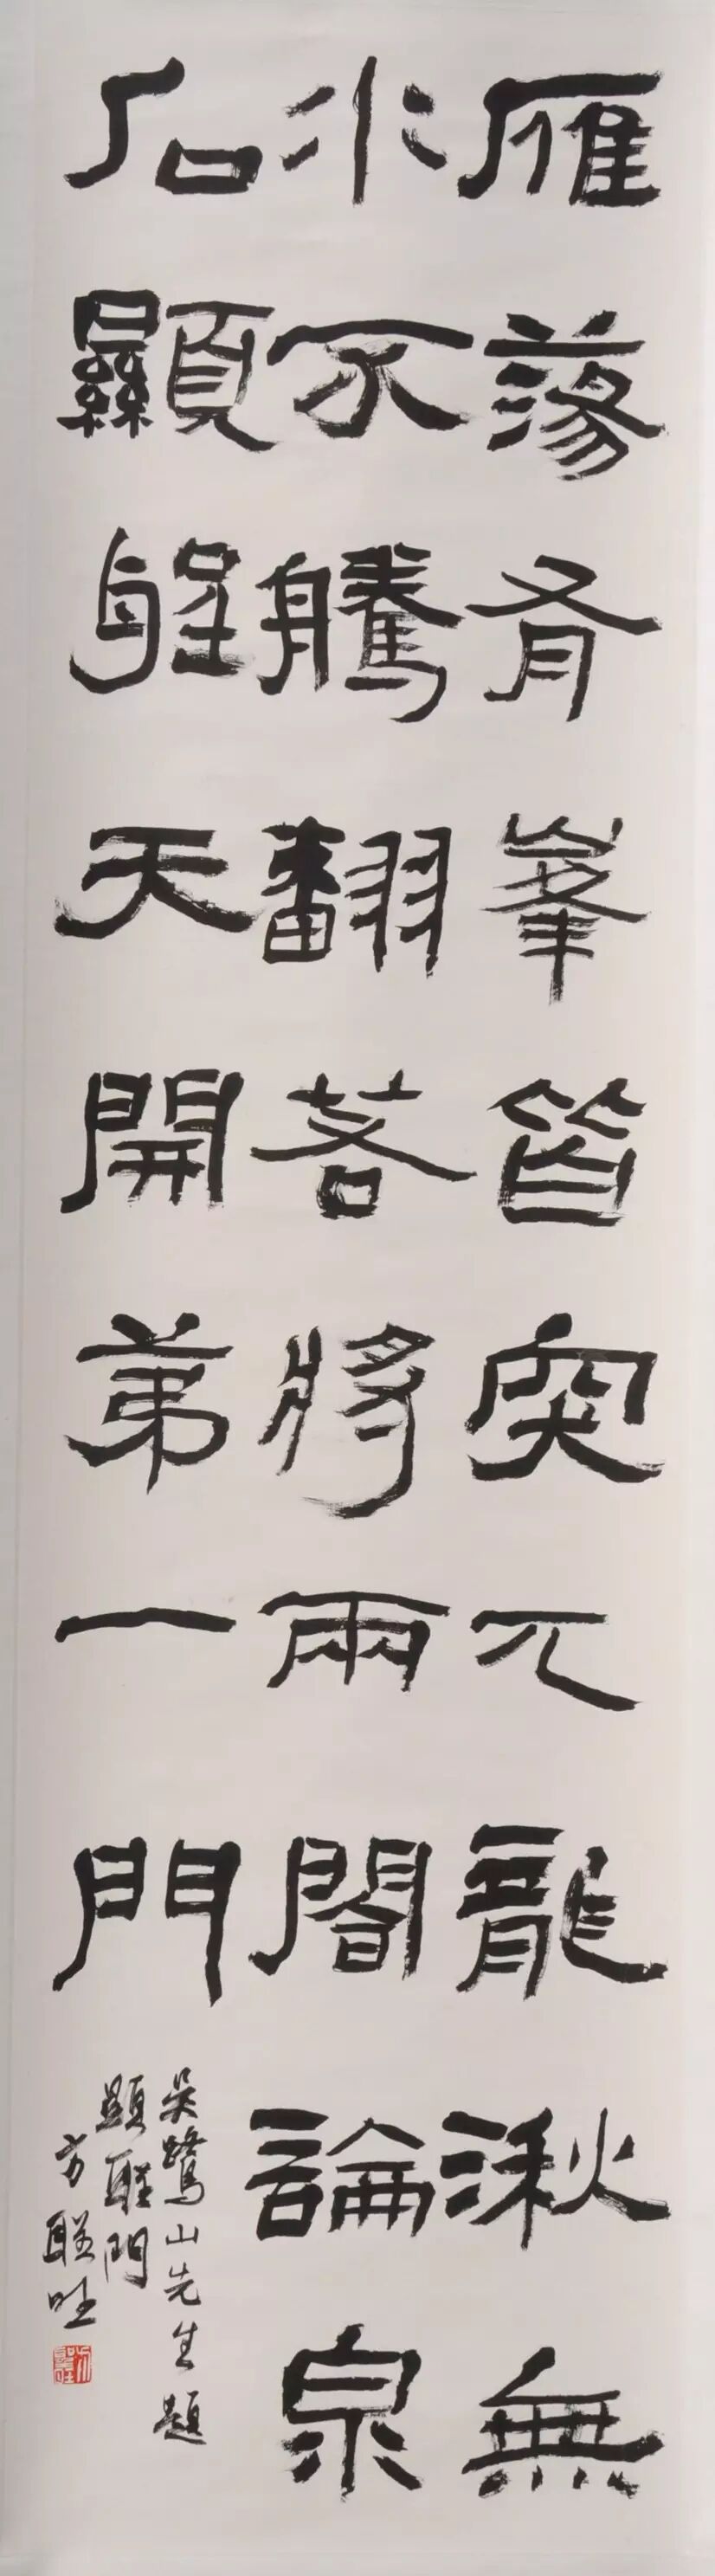 雁蕩有峯皆突兀龍湫無
水不騰翻若將兩閣論泉
石顯聖天開弟一門
吳鷺山先生題
顯聖門
方